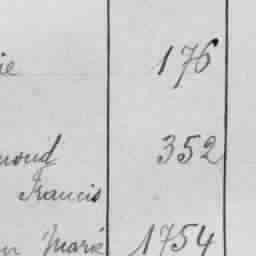 ie 176
mond 352
Francis
n Marie 1754